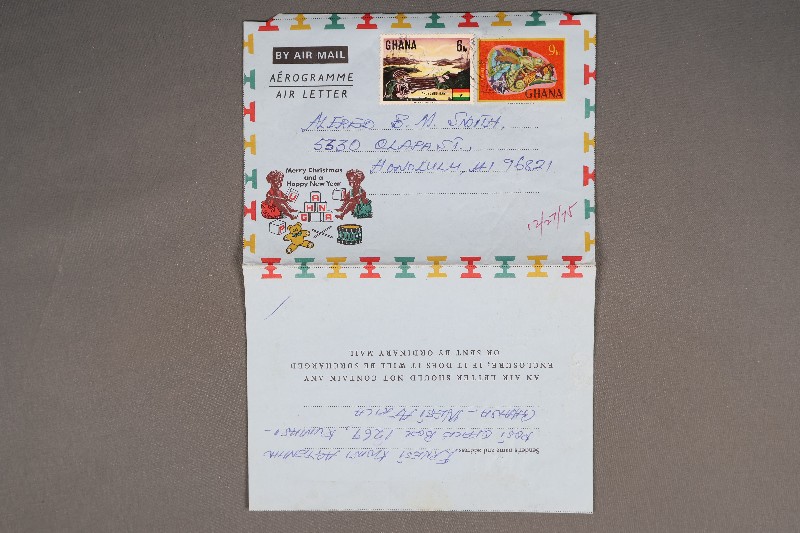 BY AIR MAIL
AÉROGRAMME
AIR LETTER
GHANA 6
9
GHANA
ALFRED B M. SMITH,
5330 OLAPA ST.,
HONOLULU, HI 96821
Merry Christmas
and a
Happy New Year
A
H N
G A
12/27/75
AN AIR LETTER SHOULD NOT CONTAIN ANY
ENCLOSURE, IF IT DOES IT WILL BE SURCHARGED
OR SENT BY ORDINARY MAIL
Sender's name and address: ERNEST
POST OFFICE BOX 1267, KUMASI -
GHANA - WEST AFRICA